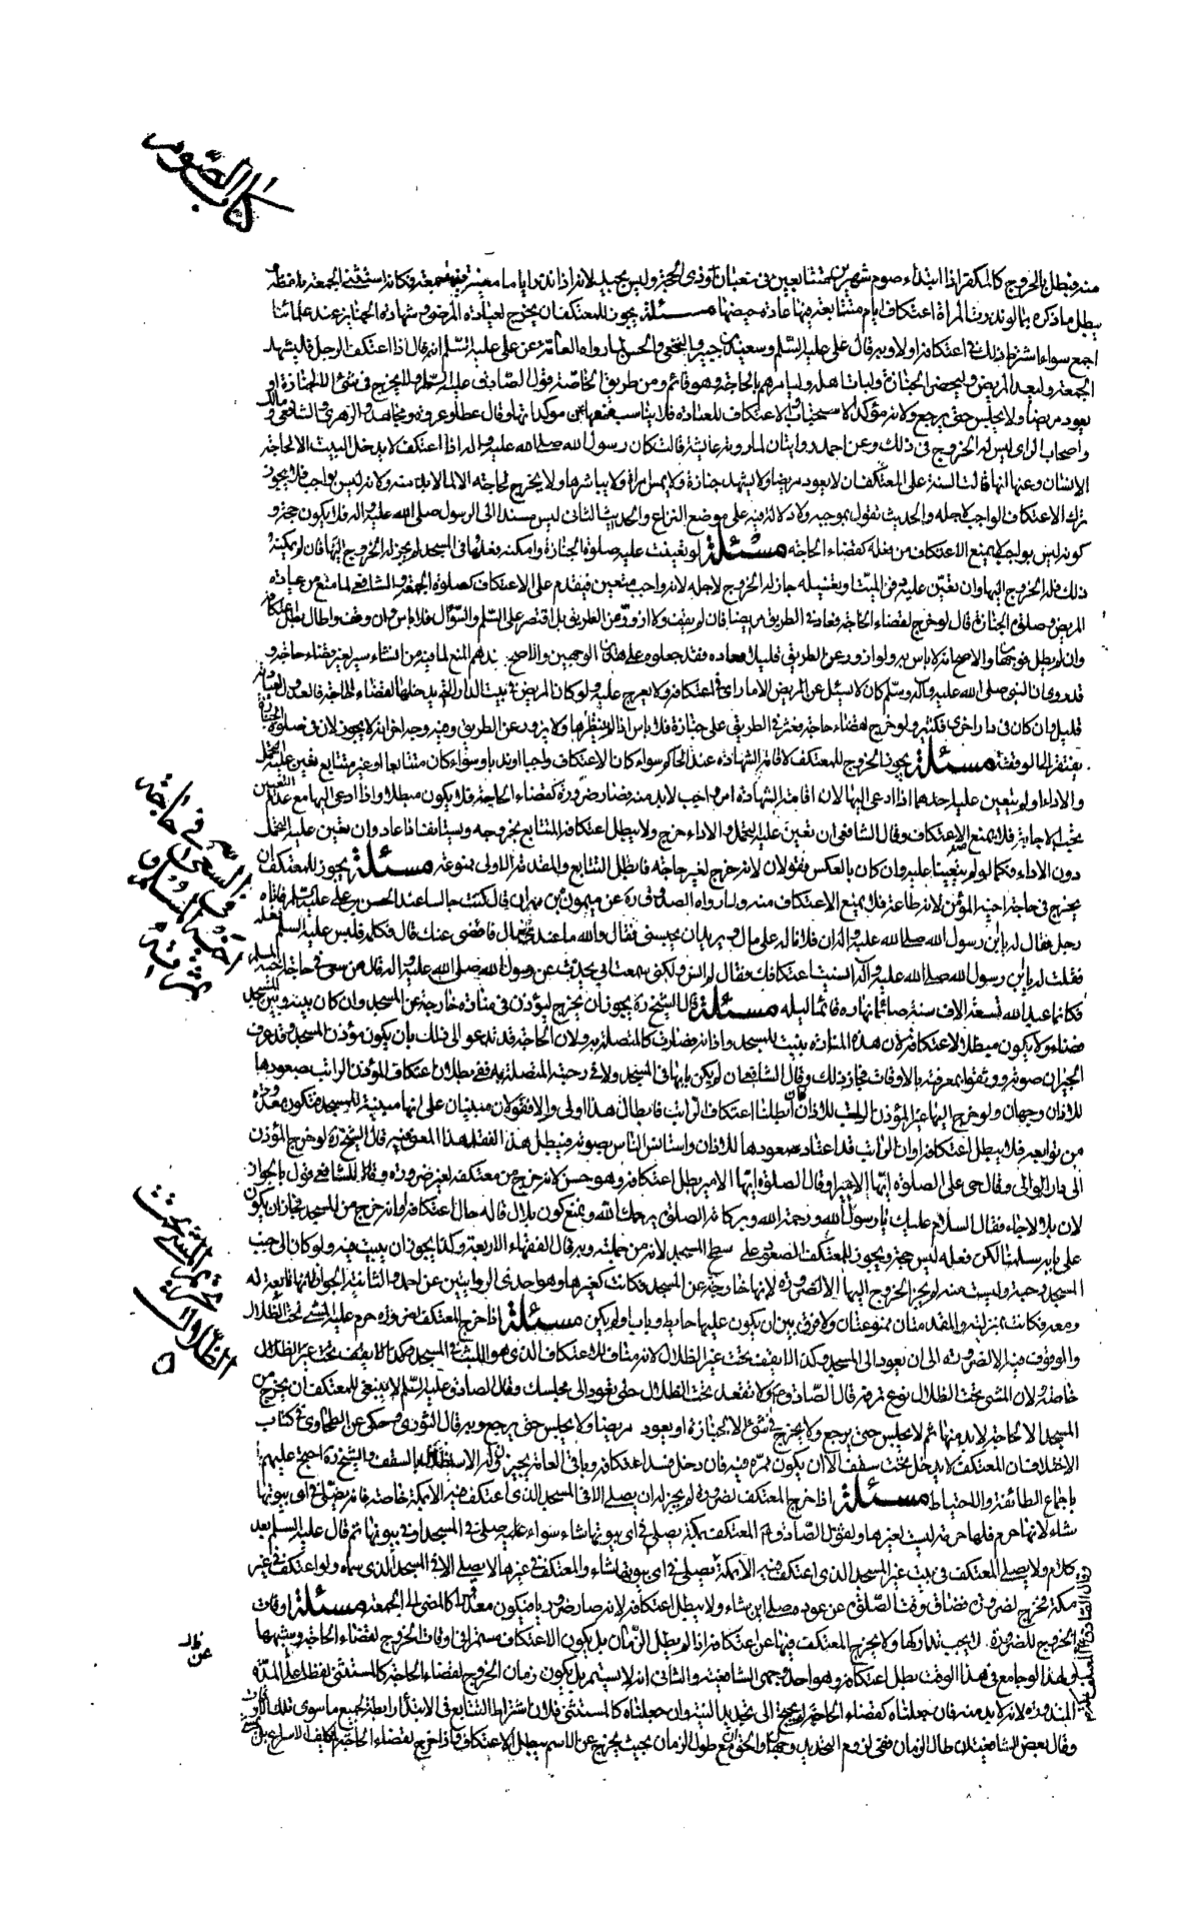 كتاب الصوم
منه فيبطل بالخروج كالمكفر اذا ابتداء صوم شهرين متتابعين في شعبان او ذي الحجة وليس بجيد لانه اذا نذر اياما معينة فيها جمعة فكانه استثنى الجمعة بلفظه
يبطل ما ذكره بما لو نذرت المراة اعتكاف ايام متتابعة فيها عادة حيضها مسئلة يجوز للمعتكف ان يخرج لعيادة المرضى وشهادة الجنايز عند علمائنا
اجمع سواء اشترط ذلك في اعتكافه او لا وبه قال علي عليه السلم وسعيد بن جبير والنخعي والحسن لما رواه العامة عن علي عليه السلم انه قال اذا اعتكف الرجل فليشهد
الجمعة وليعد المريض وليحضر الجنازة وليات اهله وليامرهم بالحاجة وهو قائم ومن طريق الخاصة قول الصادق عليه السلم ولا يخرج في شئ الا لجنازة او
يعود مريضا ولا يجلس حتى يرجع ولانه مؤكد الاستحباب والاعتكاف للعبادة فلا يناسب منعها من مؤكداتها وقال عطا وعروة ومجاهد والزهري والشافعي ومالك
واصحاب الراي ليس له الخروج في ذلك وعن احمد روايتان لما روته عايشة قالت كان رسول الله صلى الله عليه واله اذا اعتكف لا يدخل البيت الا لحاجة
الانسان وعنها انها قالت السنة على المعتكف ان لا يعود مريضا ولا يشهد جنازة ولا يمس امراة ولا يباشرها ولا يخرج لحاجة الا لما لا بد منه ولانه ليس بواجب فلا يجوز
ترك الاعتكاف الواجب لاجله والحديث نقول بموجبه ولا دلالة فيه على موضع النزاع والحديث الثاني ليس مسندا الى الرسول صلى الله عليه واله فلا يكون حجة و
كونه ليس بواجب لا يمنع الاعتكاف من فعله كقضاء الحاجة مسئلة لو تعينت عليه صلوة الجنازة وامكنه فعلها في المسجد لم يجز له الخروج اليها فان لم يمكنه
ذلك فله الخروج اليها وان تعين عليه دفن الميت او تغسيله جاز له الخروج لاجله لانه واجب متعين فيقدم على الاعتكاف كصلوة الجمعة والشافعي لما منع من عيادة
المريض وصلوة الجنازة قال لو خرج لقضاء الحاجة فعاد في الطريق مريضا فان لم يقف ولا ازور عن الطريق بل اقتصر على السلم والسؤال فلا باس وان وقف واطال بطل اعتكافه
وان لم يطل فوجهان والاصح انه لا باس به ولو ازور عن الطريق قليلا فعاده فقد جعلوه على هذين الوجهين والاصح عندهم المنع لما فيه من انشاء سير لغير قضاء حاجة و
قد روى ان النبي صلى الله عليه وآله وسلم كان لا يسئل عن المريض الا مارا في اعتكافه ولا يعرج عليه ولو كان المريض في بيت الدار التي يدخلها لقضاء الحاجة فالعدول لعيادته
قليل وان كان في دار اخرى فكثير ولو خرج لقضاء حاجة فعثر في الطريق على جنازة فلا باس اذا لم ينتظرها ولا يزور عن الطريق وفيه وجه اخر انه لا يجوز لان في صلوة الجنازة
يفتقر الى الوقفة مسئلة يجوز الخروج للمعتكف لاقامة الشهادة عند الحاكم سواء كان الاعتكاف واجبا او ندبا وسواء كان متتابعا او غير متتابع تعين عليه التحمل
والاداء او لم يتعين عليه احدهما اذا دعى اليها لان اقامة الشهادة امر واجب لا بد منه فصار ضرورة كقضاء الحاجة فلا يكون مبطلا واذا دعى اليها مع عدم التعيين
يجب الاجابة فلا يمنع الاعتكاف وقال الشافعي ان تعين عليه التحمل والاداء خرج ولا يبطل اعتكافه المتتابع بخروجه ويستانف اذا عاد وان تعين عليه التحمل
دون الاداء فكما لو لم يتعينا عليه وان كان بالعكس فقولان لانه خرج لغير حاجته فابطل التتابع والمقدمة الاولى ممنوعة مسئلة يجوز للمعتكف ان
يخرج في حاجة اخيه المؤمن لانه طاعة فلا يمنع الاعتكاف منه ولما رواه الصدوق ره عن ميمون بن مهران قال كنت جالسا عند الحسن بن علي عليه السلم فاتاه
رجل فقال له يا بن رسول الله صلى الله عليه واله ان فلانا له علي مال ويريد ان يحبسني فقال والله ما عندي مال فاقضي عنك قال فكلمه فلبس عليه السلم نعله
فقلت له يا بن رسول الله صلى الله عليه وآله انسيت اعتكافك فقال لم انس ولكني سمعت ابي يحدث عن رسول الله صلى الله عليه واله قال من سعى في حاجة اخيه المسلم
فكانما عبد الله تسعة الاف سنة صائما نهاره قائما ليله مسئلة قال الشيخ ره يجوز ان يخرج ليؤذن في منارة خارجة عن المسجد وان كان بينه وبين المسجد
فضاء ولا يكون مبطلا لاعتكافه لان هذه المنارة بنيت للمسجد واذانه فصارت كالمتصلة به ولان الحاجة قد تدعو الى ذلك بان يكون مؤذن المسجد وقد عرف
الجيران صوته ووثقوا بمعرفته بالاوقات فجاز ذلك وقال الشافعي ان لم يكن بابها في المسجد ولا في رحبته المتصلة به ففي بطلان اعتكاف المؤذن الراتب بصعودها
للاذان وجهان ولو خرج اليها غير المؤذن الراتب للاذان فان ابطلنا اعتكاف الراتب فابطال هذا اولى والا فقولان مبنيان على انها مبنية للمسجد فتكون معدودة
من توابعه فلا يبطل اعتكافه او ان الراتب قد اعتاد صعودها للاذان واستانس الناس بصوته فيبطل هذا لفقد هذا المعنى فيه قال الشيخ ره لو خرج المؤذن
الى دار الوالي وقال حي على الصلوة ايها الامير او قال الصلوة ايها الامير بطل اعتكافه وهو حسن لانه خرج من معتكفه لغير ضرورة وقال للشافعي قول بالجواز
لان بلالا جاء فقال السلام عليك يا رسول الله ورحمة الله وبركاته الصلوة يرحمك الله ويمنع كون بلال قاله حال اعتكافه او انه خرج من المسجد فجاز ان يكون
على بابه سلمنا لكن فعله ليس حجة ويجوز للمعتكف الصعود على سطح المسجد لانه من جملته وبه قال الفقهاء الاربعة وكذا يجوز ان يبيت فيه ولو كان الى جنب
المسجد رحبة وليست منه لم يجز الخروج اليها الا لضرورة لانها خارجة عن المسجد فكانت كغيرها وهو احدى الروايتين عن احمد والثانية الجواز لانها تابعة له
ومعه فكانت بمنزلته والمقدمتان ممنوعتان ولا فرق بين ان يكون عليها حايط وباب او لم يكن مسئلة اذا خرج المعتكف لضرورة حرم عليه المشي تحت الظلال
والوقوف فيه الا لضرورة الى ان يعود الى المسجد وكذا لا يقف تحت غير الظلال لانه مناف للاعتكاف الذي هو اللبث في المسجد وكذا لا يقف تحت غير الظلال
خاصة ولان المشي تحت الظلال نوع ترفه قال الصادق ع ولا تقعد تحت الظلال حتى تعود الى مجلسك وقال الصادق عليه السلم لا ينبغي للمعتكف ان يخرج من
المسجد الا لحاجة لا بد منها ثم لا يجلس حتى يرجع ولا يخرج في شئ الا لجنازة او يعود مريضا ولا يجلس حتى يرجع وبه قال الثوري وحكى عن الطحاوي في كتاب
الاختلاف ان المعتكف لا يدخل تحت سقف الا ان يكون ممره فيه فان دخل فسد اعتكافه وباقي العامة يجيزون له الاستظلال بالسقف والشيخ ره احتج عليهم
باجماع الطائفة والاحتياط مسئلة اذا خرج المعتكف لضرورة لم يجز له ان يصلي الا في المسجد الذي اعتكف فيه الا بمكة خاصة فانه يصلي في اي بيوتها
شاء لانها حرم فلها حرمة ليست لغيرها ولقول الصادق ع المعتكف بمكة يصلي في اي بيوتها شاء سواء عليه صلى في المسجد او في بيوتها ثم قال عليه السلم بعد
كلام ولا يصلي المعتكف في بيت غير المسجد الذي اعتكف فيه الا بمكة يصلي في اي بيوتها شاء والمعتكف في غيرها لا يصلي الا في المسجد الذي سماه ولو اعتكف في غير
مكة فخرج لضرورة فضاق وقت الصلوة عن عوده صلى اين شاء ولا يبطل اعتكافه لانه صار ضروريا فيكون معذورا كالمضي الى الجمعة مسئلة اوقات
الخروج للضرورة لا يجب تداركها ولا يخرج المعتكف فيها عن اعتكافه اذا لم يطل الزمان بل يكون الاعتكاف مستمرا في اوقات الخروج لقضاء الحاجة وشبهها
ولهذا لو جامع في هذا الوقت بطل اعتكافه وهو احد وجهي الشافعية والثاني انه لا يستمر بل يكون زمان الخروج لقضاء الحاجة كالمستثنى لفظا عن المدة
المنذورة لانه لا بد منه فان جعلناه كقضاء الحاجة لم يحتج الى تجديد النية وان جعلناه كالمستثنى فلان اشتراط التتابع في الابتداء رابطة لجميع ما سوى تلك الاوقات
وقال بعض الشافعية ان طال الزمان ففي لزوم التجديد وجهان والحق ان مع طول الزمان بحيث يخرج عن الاسم يبطل الاعتكاف واذا خرج لقضاء الحاجة لم يكلف الاسراع بل يمشي
السعى في حاجة
تحريم المشي تحت
الظلال